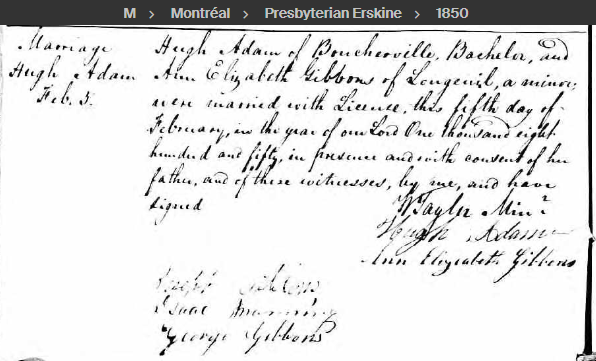 M > Montréal > Presbyterian Erskine > 1850
Marriage
Hugh Adam
Feb. 5.
Hugh Adam of Boucherville, Bachelor, and
Ann Elizabeth Gibbons of Longeuil, a minor,
were married with Licence, this fifth day of
February, in the year of our Lord One thousand eight
hundred and fifty, in presence and with consent of her
father, and of these witnesses, by me, and have
signed
W Taylor Minr
Hugh Adam
Ann Elizabeth Gibbons
Joseph
Isaac Manning
George Gibbons